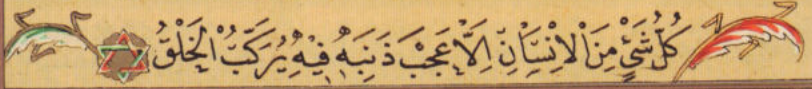 كُلُّ شَئٍْ مِنَ الْاِنْسَانِ اِلَّا عَجْبَ ذَنَبِهُ فِيهِ يُرَكَّبُ الْخَلْقُ